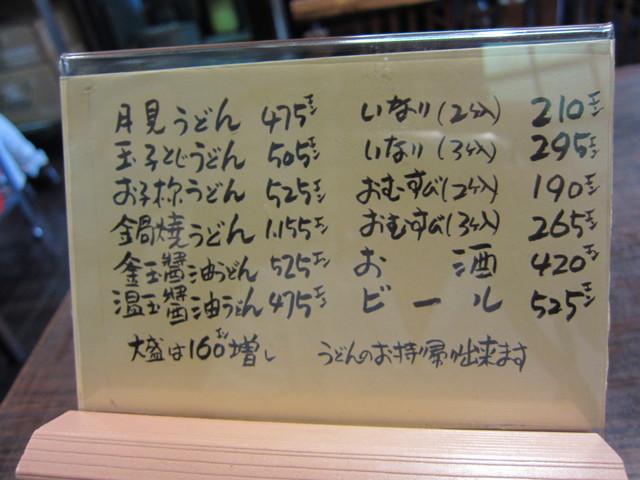 月見うどん 475エン
玉子とじうどん 505エン
お子様うどん 525エン
鍋焼うどん 1,155エン
釜玉醤油うどん 525エン
温玉醤油うどん 475エン
大盛は160エン増し
いなり(2ケ入) 210エン
いなり(3ケ入) 295エン
おむすび(2ケ入) 190エン
おむすび(3ケ入) 265エン
お酒 420エン
ビール 525エン
うどんのお持帰り出来ます